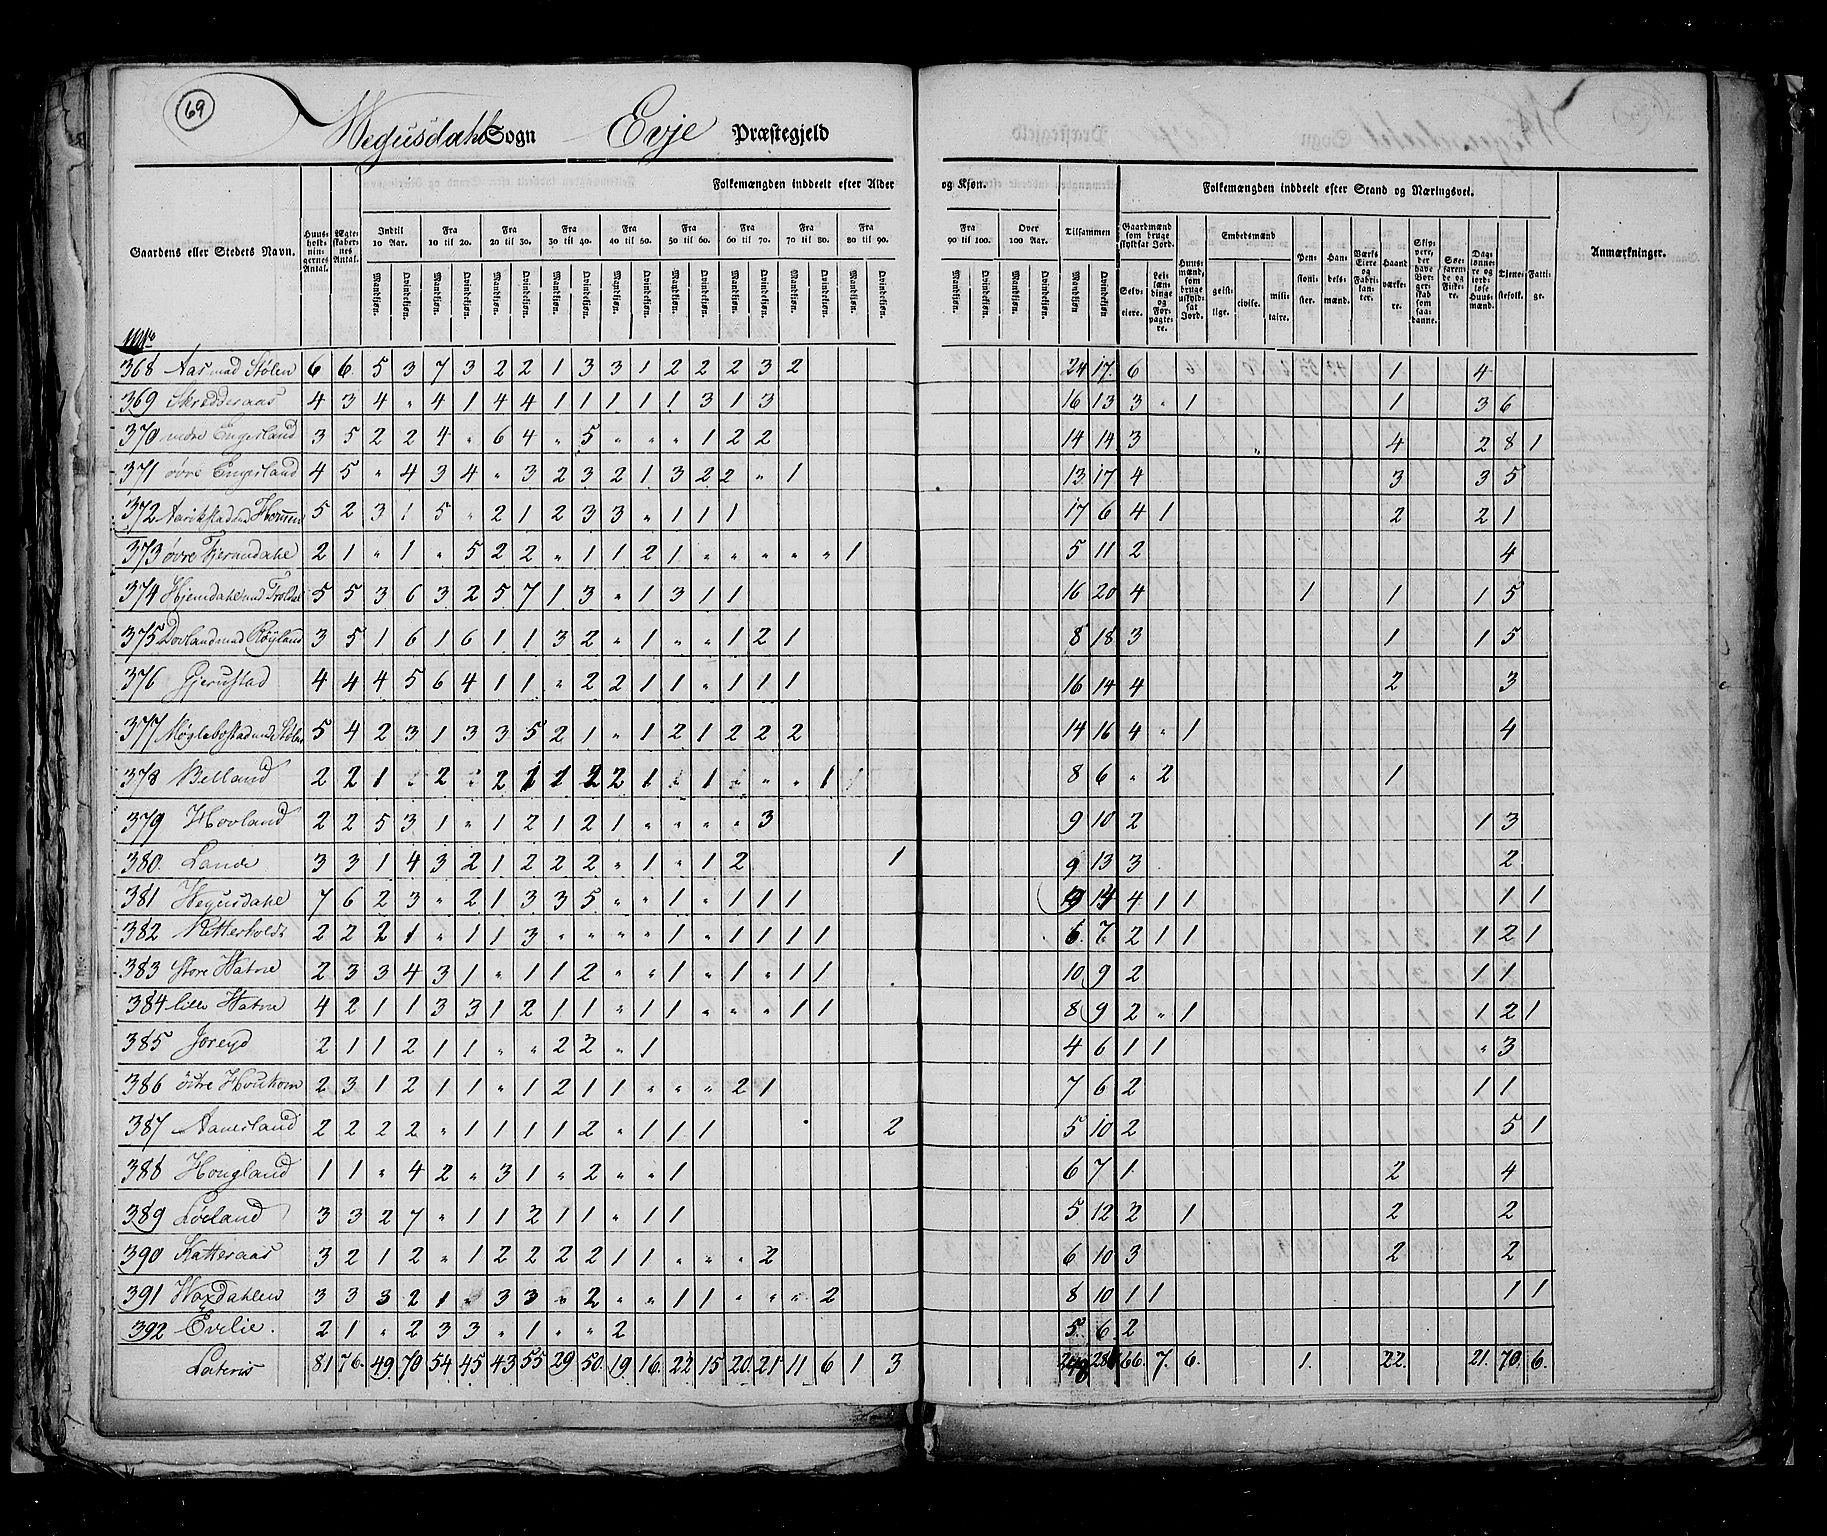 69
Wegusdahl Sogn Evje Præstegjeld
Folkemængden inddeelt efter Alder og Kjøn. Folkemængden inddeelt efter Stand og Næringsvei.
Gaardens eller Stedets Navn. Huusholdningernes Antal. Ægteskabernes Antal. Indtil 10 Aar. Fra 10 til 20. Fra 20 til 30. Fra 30 til 40. Fra 40 til 50. Fra 50 til 60. Fra 60 til 70. Fra 70 til 80. Fra 80 til 90. Fra 90 til 100. Over 100 Aar. Tilsammen Gaardmænd som bruge skyldsat Jord. Huusmænd, som bruge uskyldsat Jord. Embedsmænd Pensionister. Handelsmænd. Værks Eiere og Fabrikanter. Haandværkere. Skippere, der have Borgerskab som saadanne. Søefarende og Fiskere. Daglønnere og jordløse Huusmænd. Tjenestefolk. Fattige. Anmærkninger.
Mandkjøn. Qvindekjøn. Selveiere. Leilændinge og Forpagtere. geistlige. civile. militaire.
368 Aas med Stølen 6 6 5 3 7 3 2 2 1 3 3 1 2 2 2 3 2 24 17 6 1 4
369 Skredderaas 4 3 4 " 4 1 4 4 1 1 1 1 1 3 1 3 16 13 3 " 1 1 3 6
370 nedre Engesland 3 5 2 2 4 " 6 4 " 5 " " " 1 2 2 14 14 3 4 2 8 1
371 øvre Engesland 4 5 " 4 3 4 " 3 2 3 2 1 3 2 2 " 1 13 17 4 3 3 5
372 5 2 3 1 5 " 2 1 2 3 3 " 1 1 1 17 6 4 1 2 2 1
373 øvre 2 1 " 1 " 5 2 2 " 1 1 2 1 " " " " " 1 5 11 2 4
374 5 5 3 6 3 2 5 7 1 3 " 1 3 1 1 16 20 4 1 1 1 5
375 Dovland med Røyland 3 5 1 6 1 6 1 1 3 2 " 1 " " 1 2 1 8 18 3 1 1 5
376 Gjerustad 4 4 4 5 6 4 1 1 " 2 2 1 1 " 1 1 1 16 14 4 2 3
377 5 4 2 3 1 3 3 5 2 1 " 1 2 1 2 2 2 14 16 4 " 1 4
378 Belland 2 2 1 2 2 1 1 2 2 1 " 1 " " 1 8 6 " 2 1
379 Hovland 2 2 5 3 1 " 1 2 1 2 1 " " " " 3 9 10 2 1 3
380 Lande 3 3 1 4 3 2 1 2 2 2 " 1 " 1 2 1 9 13 3 2
381 Wegusdahl 7 6 2 3 " 2 1 3 3 5 " " 1 " 1 1 1 9 14 4 1 1 1 1
382 2 2 2 1 " 1 1 3 " " " " 1 " 1 1 1 1 6 7 2 1 1 1 2 1
383 Store Hatne 2 3 3 4 3 1 " 1 1 2 " " 1 " 1 " 1 1 10 9 2 1 1
384 lille Hatne 4 2 1 1 3 3 1 2 1 1 " 1 1 " " " 1 1 8 9 2 " 1 1 2 1
385 Joreid 2 1 1 2 1 1 " " 2 2 " 1 4 6 1 1 " 3
386 østre 2 3 1 2 1 1 " 1 2 1 1 " " " 2 1 7 6 2 1 1
387 2 2 2 2 " 1 1 1 1 2 " 1 1 1 2 5 10 2 5 1
388 Hougland 1 1 " 4 2 " 3 1 " 2 " " 1 6 7 1 2 4
389 Løeland 3 3 2 7 " 1 1 2 1 1 " 1 1 5 12 2 1 2 2
390 Katteraas 3 2 1 2 " 1 2 2 2 2 1 1 " " " 2 6 10 3 2 2
391 3 3 3 2 1 " 3 3 " 2 " " 1 1 " " " 2 8 10 1 1 1 1
392 Evelie. 2 1 " 2 3 3 " 1 " " 2 5 6 2
Lateris 81 76 49 70 54 45 43 55 29 50 19 16 22 15 20 21 11 6 1 3 248 66 7 6 1 22 21 70 6